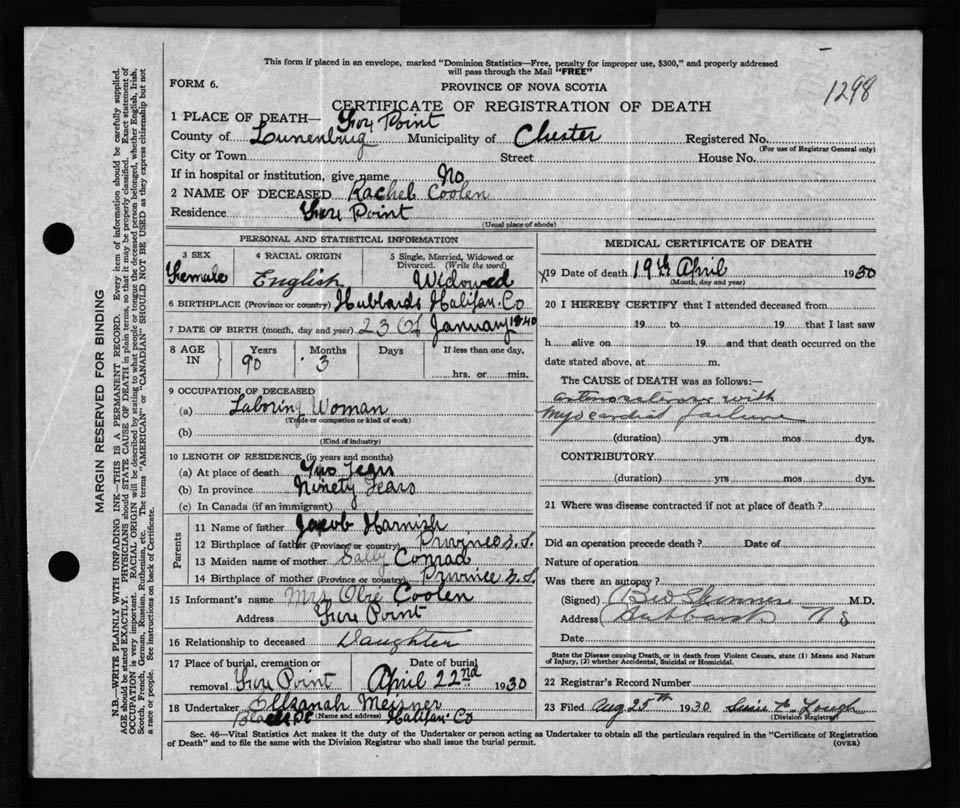 This form if placed in an envelope, marked "Dominion Statistics—Free, penalty for improper use, $300," and properly addressed
will pass through the Mail "FREE"
FORM 6.
PROVINCE OF NOVA SCOTIA
1298
CERTIFICATE OF REGISTRATION OF DEATH
1 PLACE OF DEATH— Fox Point
County of Lunenburg Municipality of Chester Registered No.
(For use of Registrar General only)
City or Town Street House No.
If in hospital or institution, give name No
2 NAME OF DECEASED Rachel Coolen
Residence Fox Point
(Usual place of abode)
PERSONAL AND STATISTICAL INFORMATION
3 SEX 4 RACIAL ORIGIN 5 Single, Married, Widowed or
Divorced. (Write the word)
Female English Widowed
6 BIRTHPLACE (Province or country) Hubbards Halifax. Co
7 DATE OF BIRTH (month, day and year) 23 Of January 1840
8 AGE IN Years Months Days If less than one day,
90 3 hrs. or min.
9 OCCUPATION OF DECEASED
(a) Laboring Woman
(Trade or occupation or kind of work)
(b)
(Kind of industry)
10 LENGTH OF RESIDENCE (in years and months)
(a) At place of death Years
(b) In province Ninety Years
(c) In Canada (if an immigrant)
Parents
11 Name of father Jacob Harnish
12 Birthplace of father (Province or country) Province N.S.
13 Maiden name of mother Sally Conrad
14 Birthplace of mother (Province or country) Province N.S.
15 Informant's name Mrs Obie Coolen
Address Fox Point
16 Relationship to deceased Daughter
17 Place of burial, cremation or Date of burial
removal Fox Point April 22nd 1930
18 Undertaker Elkanah Meisner
(Name and address)
Black Pt Halifax Co
MEDICAL CERTIFICATE OF DEATH
X19 Date of death 19th April 1930
(Month, day and year)
20 I HEREBY CERTIFY that I attended deceased from
19 to 19 that I last saw
h alive on 19 and that death occurred on the
date stated above, at m.
The CAUSE of DEATH was as follows:—
arteriosclerosis with
myocardial failure
(duration) yrs mos dys.
CONTRIBUTORY
(duration) yrs mos dys.
21 Where was disease contracted if not at place of death?
Did an operation precede death? Date of
Nature of operation
Was there an autopsy?
(Signed) Skinner M.D.
Address Hubbards N S
Date
State the Disease causing Death, or in death from Violent Causes, state (1) Means and
Nature of Injury, (2) whether Accidental, Suicidal or Homicidal.
22 Registrar's Record Number
23 Filed Aug 25th 1930 Susie
(Division Registrar)
Sec. 46—Vital Statistics Act makes it the duty of the Undertaker or person acting as Undertaker to obtain all the particulars required in the "Certificate of Registration
of Death" and to file the same with the Division Registrar who shall issue the burial permit.
(OVER)
MARGIN RESERVED FOR BINDING
N.B.—WRITE PLAINLY WITH UNFADING INK—THIS IS A PERMANENT RECORD. Every item of information should be carefully supplied.
AGE should be stated EXACTLY. PHYSICIANS should STATE CAUSE OF DEATH in plain terms, so that it may be properly classified. Exact statement of
OCCUPATION is very important. RACIAL ORIGIN will be described by stating to what people or tongue the deceased person belonged, whether English, Irish,
Scotch, French, German, Russian, Ruthenian, etc. The terms "AMERICAN" or "CANADIAN" SHOULD NOT BE USED as they express citizenship but not
a race or people. See instructions on back of Certificate.